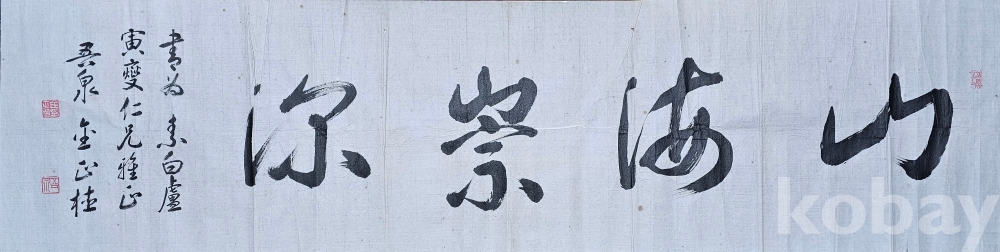 山海崇深
書為 素白盧
寅燮仁兄雅正
吾泉 金正
kobay